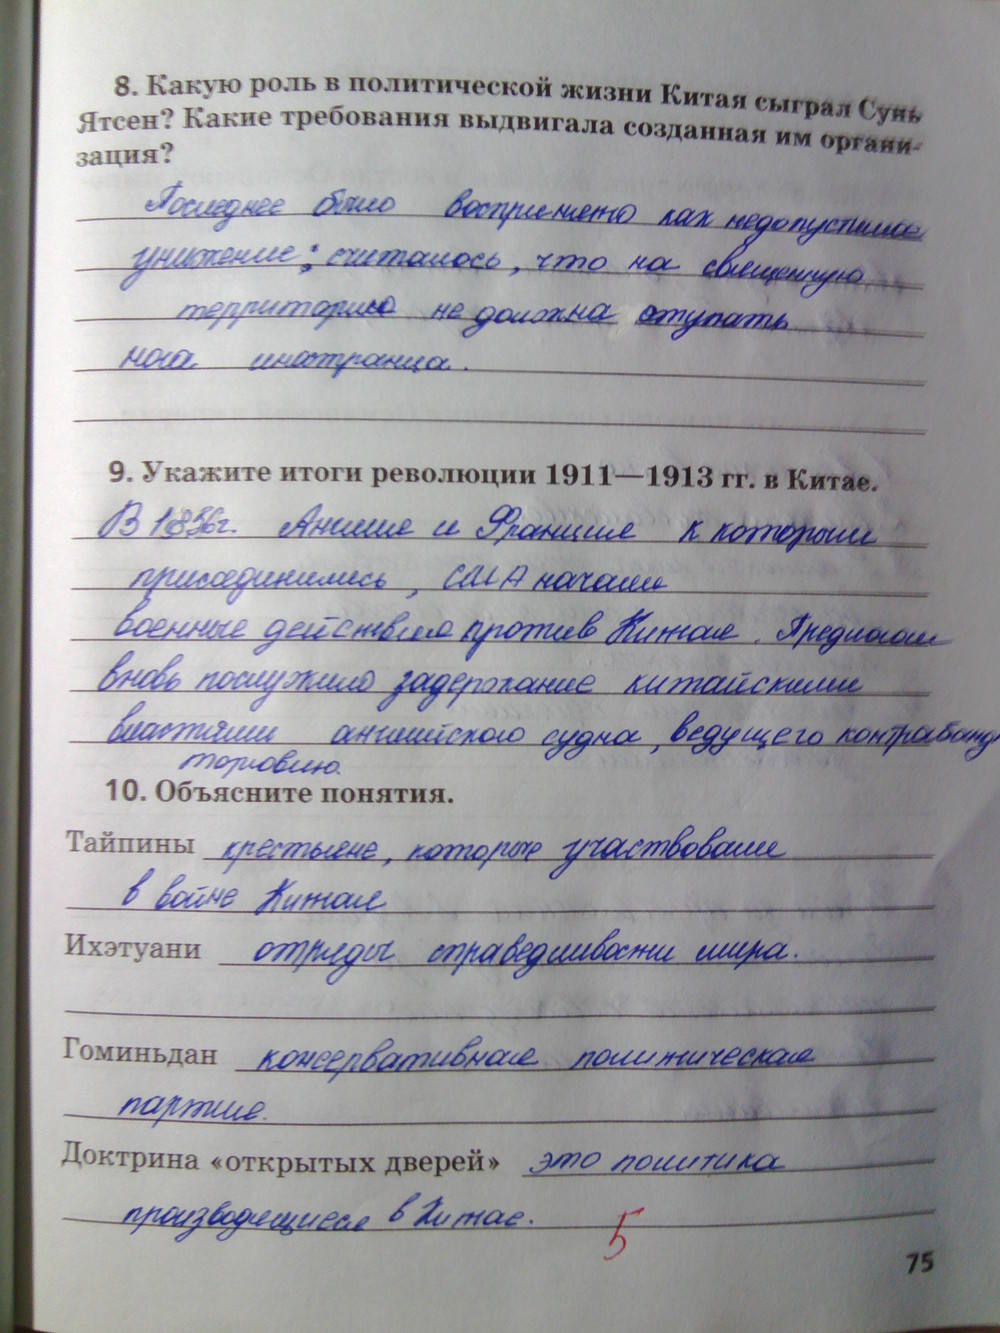 8. Какую роль в политической жизни Китая сыграл Сунь
Ятсен? Какие требования выдвигала созданная им органи-
зация?
Последнее было воспринято как недопустимое
унижение; считалось, что на священную
территорию не должна ступать
нога иностранца.
9. Укажите итоги революции 1911—1913 гг. в Китае.
В 1856г. Англия и Франция к которым
присоединились, США начали
военные действия против Китая. Предлогом
вновь послужило задержание китайскими
властями английского судна, ведущего контрабанд
торговлю.
10. Объясните понятия.
Тайпины крестьяне, которые участвовали
в войне Китая
Ихэтуани отряды справедливости мира.
Гоминьдан консервативная политическая
партия.
Доктрина «открытых дверей» это политика
производящиеся в Китае.
5
75